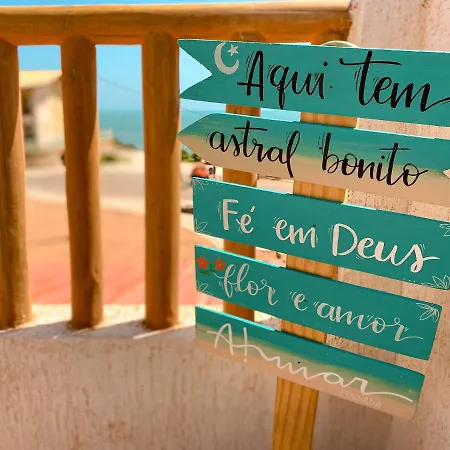 Aqui tem
astral bonito
Fé em Deus
flor e amor